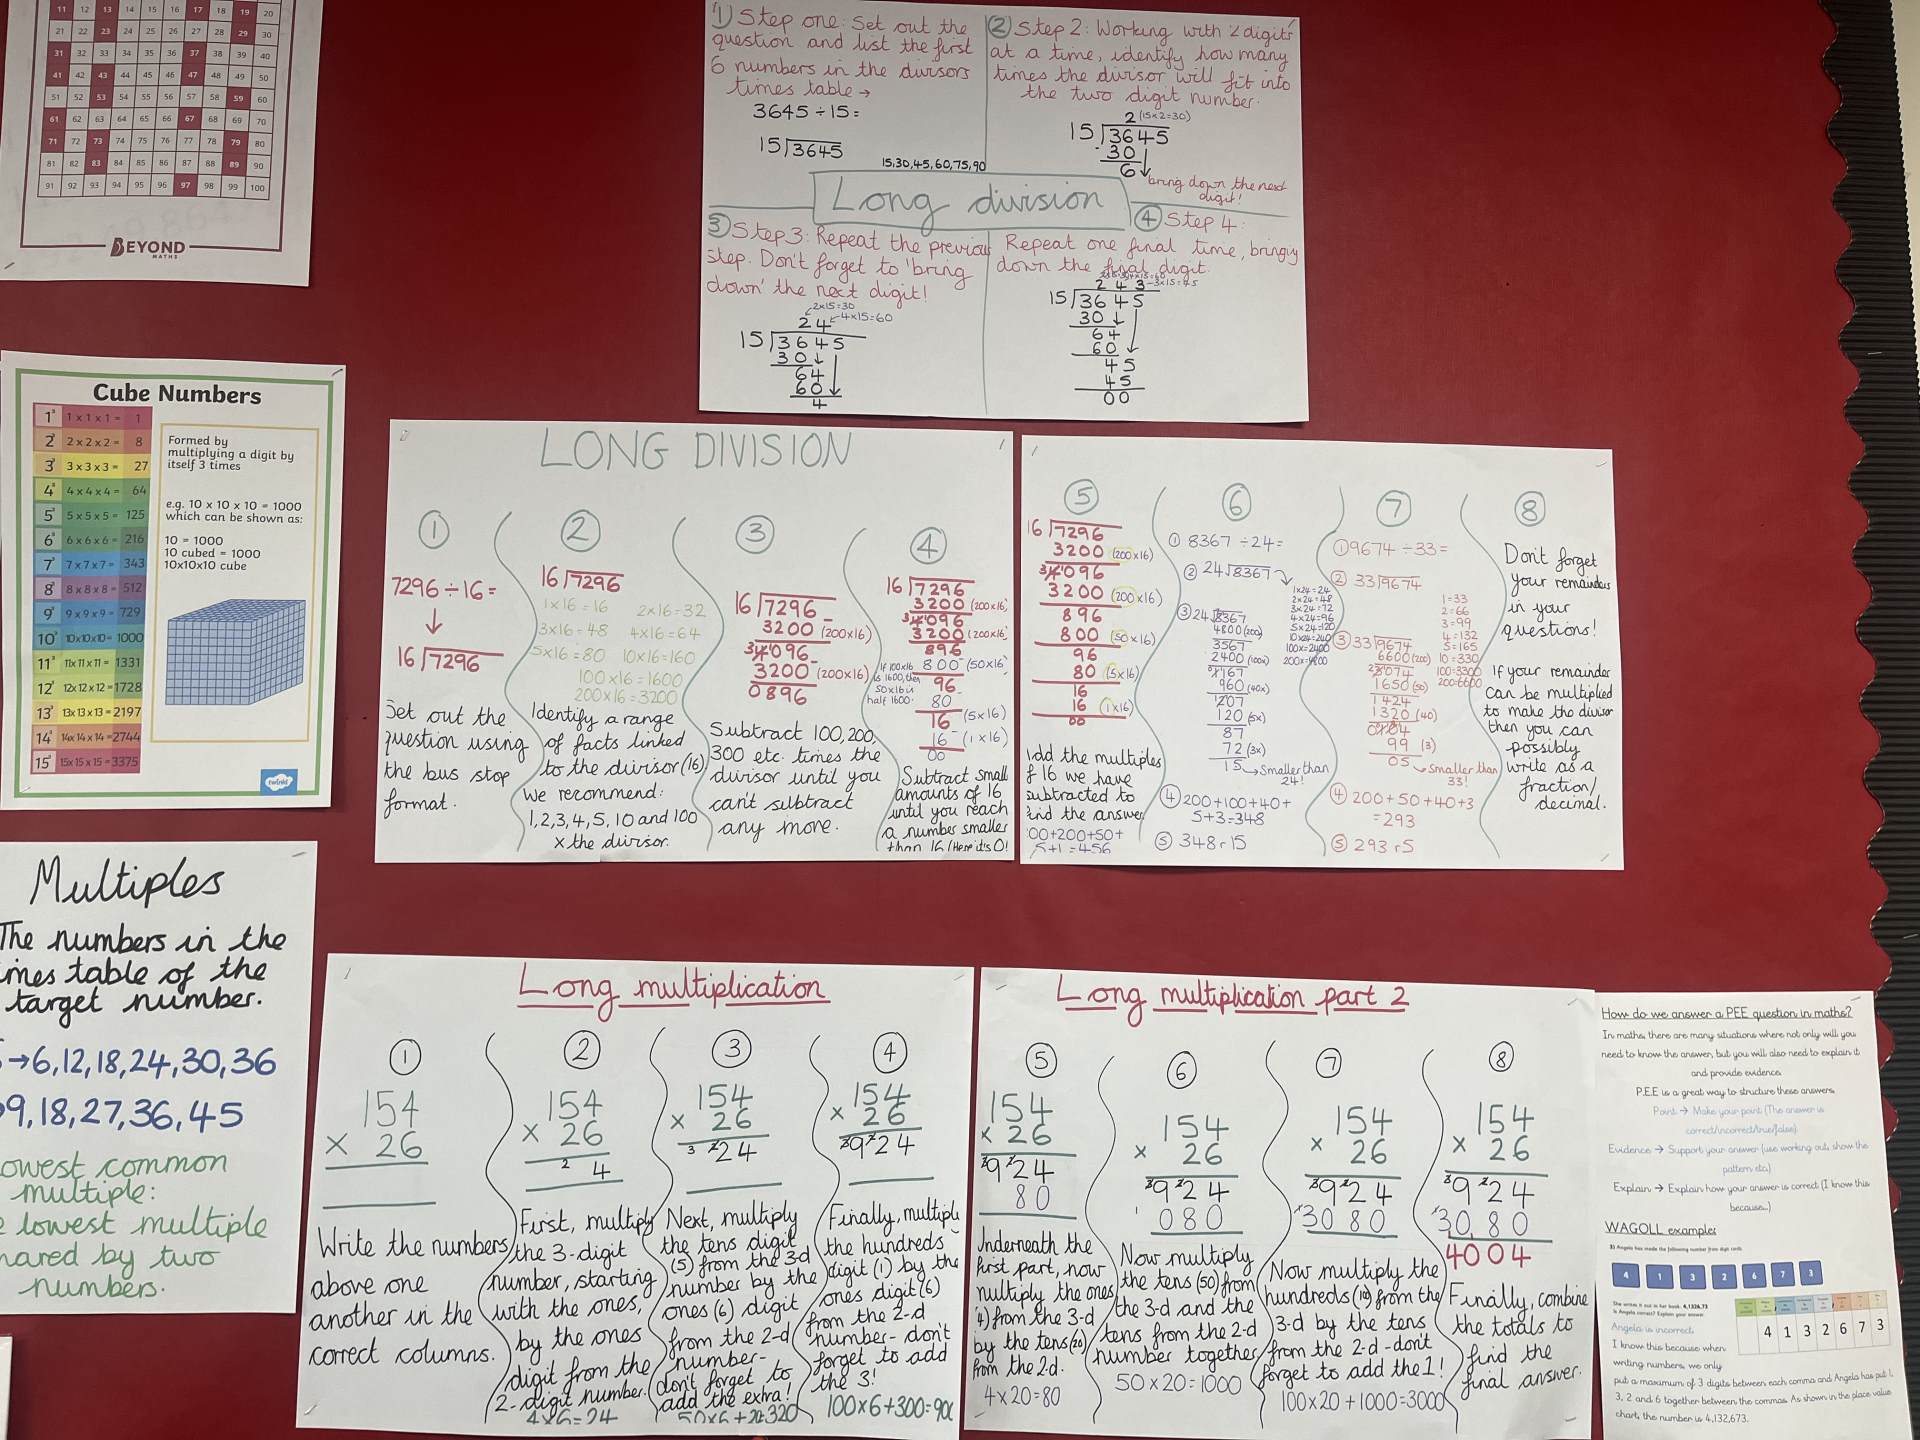 11 12 13 14 15 16 17 18 19 20
21 22 23 24 25 26 27 28 29 30
31 32 33 34 35 36 37 38 39 40
41 42 43 44 45 46 47 48 49 50
51 52 53 54 55 56 57 58 59 60
61 62 63 64 65 66 67 68 69 70
71 72 73 74 75 76 77 78 79 80
81 82 83 84 85 86 87 88 89 90
91 92 93 94 95 96 97 98 99 100
BEYOND
MATHS
Cube Numbers
1³ 1 x 1 x 1 = 1
2³ 2 x 2 x 2 = 8
3³ 3 x 3 x 3 = 27
4³ 4 x 4 x 4 = 64
5³ 5 x 5 x 5 = 125
6³ 6 x 6 x 6 = 216
7³ 7 x 7 x 7 = 343
8³ 8 x 8 x 8 = 512
9³ 9 x 9 x 9 = 729
10³ 10x10x10 = 1000
11³ 11x 11 x 11 = 1331
12³ 12x 12 x 12 =1728
13³ 13x 13 x 13 = 2197
14³ 14x 14 x 14 =2744
15³ 15x 15 x 15 = 3375
Formed by
multiplying a digit by
itself 3 times
e.g. 10 x 10 x 10 = 1000
which can be shown as:
10 = 1000
10 cubed = 1000
10x10x10 cube
twinkl
Multiples
The numbers in the
imes table of the
target number.
→6,12,18,24,30,36
9,18,27,36,45
owest common
multiple:
e lowest multiple
hared by two
numbers.
1) Step one: Set out the
question and list the first
6 numbers in the divisors
times table →
3645 ÷ 15 =
15 3645
15,30,45,60,75,90
2 Step 2: Working with 2 digits
at a time, identify how many
times the divisor will fit into
the two digit number.
2 (15x2=30)
15 3645
- 30
6
bring down the next
digit!
Long division
3 Step 3: Repeat the previous
step. Don't forget to 'bring
down' the next digit!
2x15=30
24 4x15=60
15 3645
30
64
60
4
4 Step 4:
Repeat one final time, bringing
down the final digit.
2 4 3 -3x15=45
15 3645
30
64
60
45
45
00
LONG DIVISION
1
7296 ÷ 16 =
16 7296
Set out the
question using
the bus stop
format.
2
16 7296
1x16 = 16 2x16=32
3x16 = 48 4x16=64
5x16 = 80 10x16=160
100 x16 = 1600
200 x16 = 3200
Identify a range
of facts linked
to the divisor (16)
We recommend:
1,2,3,4,5,10 and 100
x the divisor.
3
16 7296
3200 (200x16)
4096
3200 (200x16)
0896
Subtract 100, 200,
300 etc. times the
divisor until you
can't subtract
any more.
4
16 7296
3200 (200x16)
4096
3200 (200x16)
896
If 100x16
is 1600, then
50x16 is
half 1600.
800 (50x16)
96
80 (5x16)
16
16 (1x16)
00
Subtract small
amounts of 16
until you reach
a number smaller
than 16 (Here it's 0!
5
16 7296
3200 (200x16)
4096
3200 (200x16)
896
800 (50x16)
96
80 (5x16)
16
16 (1x16)
00
Add the multiples
f 16 we have
subtracted to
find the answer
00+200+50+
5+1=456
6
1 8367 ÷24=
2 24 8367
1x24=24
2x24=48
3x24=72
4x24=96
5x24=120
10x24=240
100x=2400
200x=4800
3 24 8367
4800 (200)
3567
2400 (100x)
1167
960 (40x)
1207
120 (5x)
87
72 (3x)
15→smaller than
24!
4 200+100+40+
5+3=348
5 348 r 15
7
1 9674 ÷33=
2 33 9674
1=33
2=66
3=99
4=132
5=165
10=330
100=3300
200=6600
3 33 9674
6600 (200)
3074
1650 (50)
1424
1320 (40)
0104
99 (3)
05→smaller than
33!
4 200+50+40+3
=293
5 293 r 5
8
Don't forget
your remainders
in your
questions!
If your remainder
can be multiplied
to make the divisor
then you can
possibly
write as a
fraction/
decimal.
Long multiplication
1
154
x 26
Write the numbers
above one
another in the
correct columns.
2
154
x 26
2 4
First, multiply
the 3-digit
number, starting
with the ones,
by the ones
digit from the
2-digit number.
4x6=24
3
154
x 26
3 2 24
Next, multiply
the tens digit
(5) from the 3d
number by the
ones (6) digit
from the 2-d
number-
don't forget to
add the extra!
50x6+20=320
4
154
x 26
3 9 2 24
Finally, multiply
the hundreds
digit (1) by the
ones digit (6)
from the 2-d
number- don't
forget to add
the 3!
100x6+300=900
Long multiplication part 2
5
154
x 26
3 9 2 24
80
Underneath the
first part, now
multiply the ones
4) from the 3-d
by the tens (20)
from the 2d.
4x20=80
6
154
x 26
3 9 2 24
1 080
Now multiply
the tens (50) from
the 3-d and the
tens from the 2-d
number together
50x20=1000
7
154
x 26
3 9 2 24
1 3080
Now multiply the
hundreds (100) from the
3-d by the tens
from the 2-d -don't
forget to add the 1!
100x20+1000=3000
8
154
x 26
3 9 2 24
1 3080
4004
Finally, combine
the totals to
find the
final answer.
How do we answer a PEE question in maths?
In maths, there are many situations where not only will you
need to know the answer, but you will also need to explain it
and provide evidence.
P.E.E is a great way to structure these answers.
Point → Make your point (The answer is
correct/incorrect/true/false)
Evidence → Support your answer (use working out, show the
pattern etc.)
Explain → Explain how your answer is correct (I know this
because...)
WAGOLL examples
3) Angela has made the following number from digit cards.
4 1 3 2 6 7 3
She writes it out in her book: 4,1326,73
Is Angela correct? Explain your answer.
4 1 3 2 6 7 3
Angela is incorrect.
I know this because when
writing numbers, we only
put a maximum of 3 digits between each comma and Angela has put 1,
3, 2 and 6 together between the commas. As shown in the place value
chart, the number is 4,132,673.